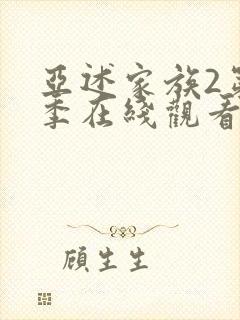 亞述家族2第
季在綫觀看
顧生生